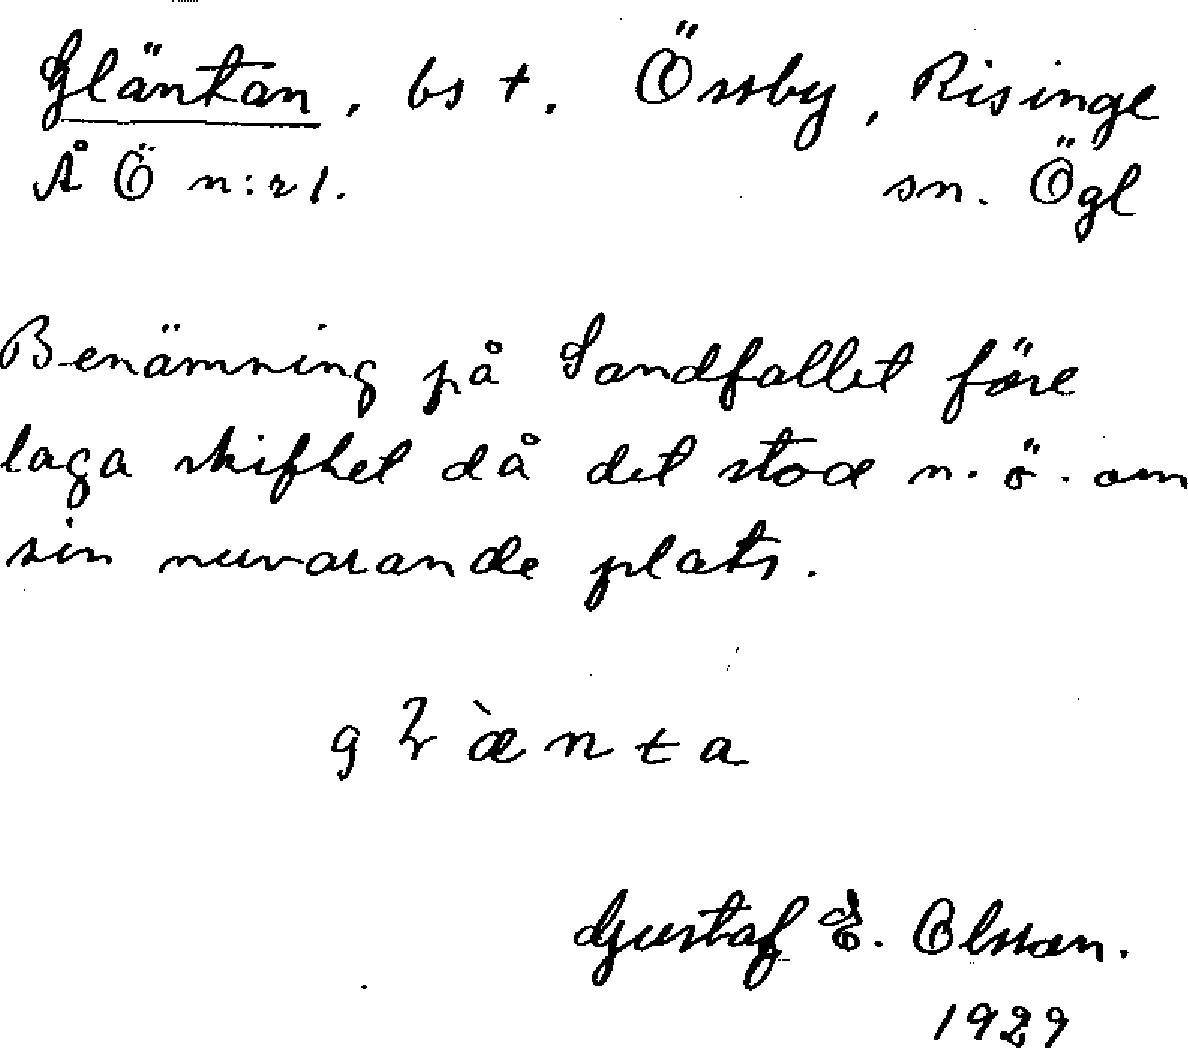 Gläntan, bs †. Össby, Risinge
ÅÖ n:r 1. sn. Ögl
Benämning på Sandfallet före
laga skiftet då det stod n. ö. om
sin nuvarande plats.
Gustaf E. Olsson.
1929